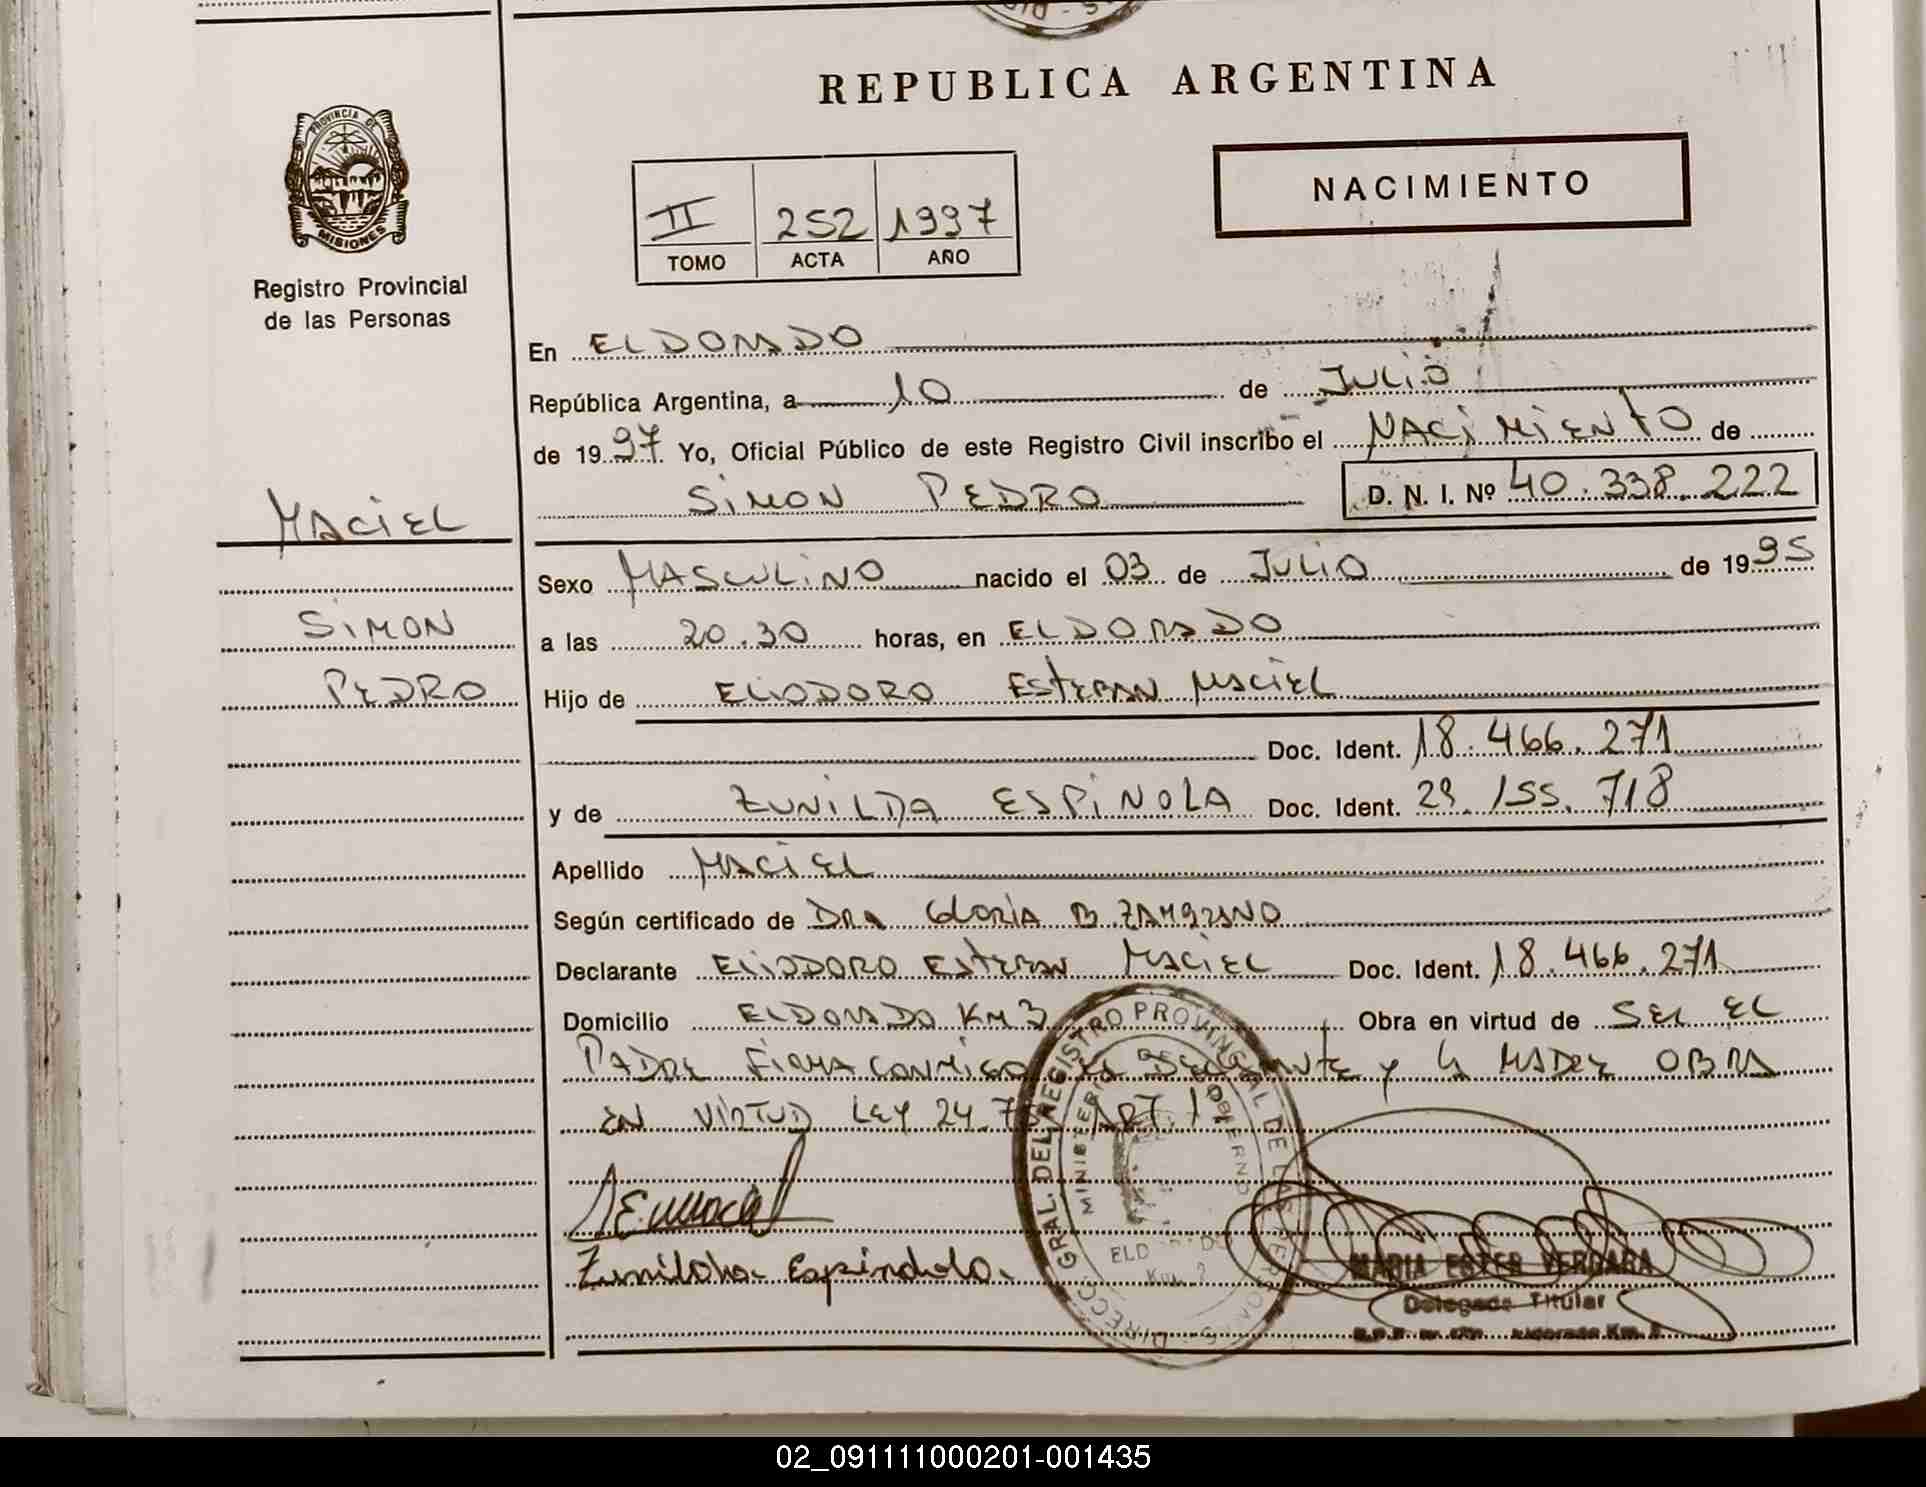 REPUBLICA ARGENTINA
PROVINCIA DE
MISIONES
Registro Provincial
de las Personas
NACIMIENTO
II 252 1997
TOMO ACTA AÑO
En ELDORADO
República Argentina, a 10 de JULIO
de 1997 Yo, Oficial Público de este Registro Civil inscribo el NACIMIENTO de
SIMON PEDRO D. N. I. Nº 40.338.222
MACIEL
SIMON
PEDRO
Sexo MASCULINO nacido el 03 de JULIO de 1995
a las 20.30 horas, en ELDORADO
Hijo de ELIODORO ESTEBAN MACIEL
Doc. Ident. 18.466.271
y de ZUNILDA ESPINOLA Doc. Ident. 29.155.718
Apellido MACIEL
Según certificado de DRA GLORIA B.
Declarante ELIODORO ESTEBAN MACIEL Doc. Ident. 18.466.271
Domicilio ELDORADO KM 3 Obra en virtud de SER EL
PADRE FIRMA CONMIGO EL DECLARANTE Y LA MADRE OBRA
EN VIRTUD LEY 24. ART. 1º
Zunilda Espindola
DIRECC. GRAL. DEL REGISTRO PROVINCIAL DE LAS PERSONAS
MINISTERIO DE GOBIERNO
MARIA ESTER VERGARA
Delegada Titular
02_091111000201-001435